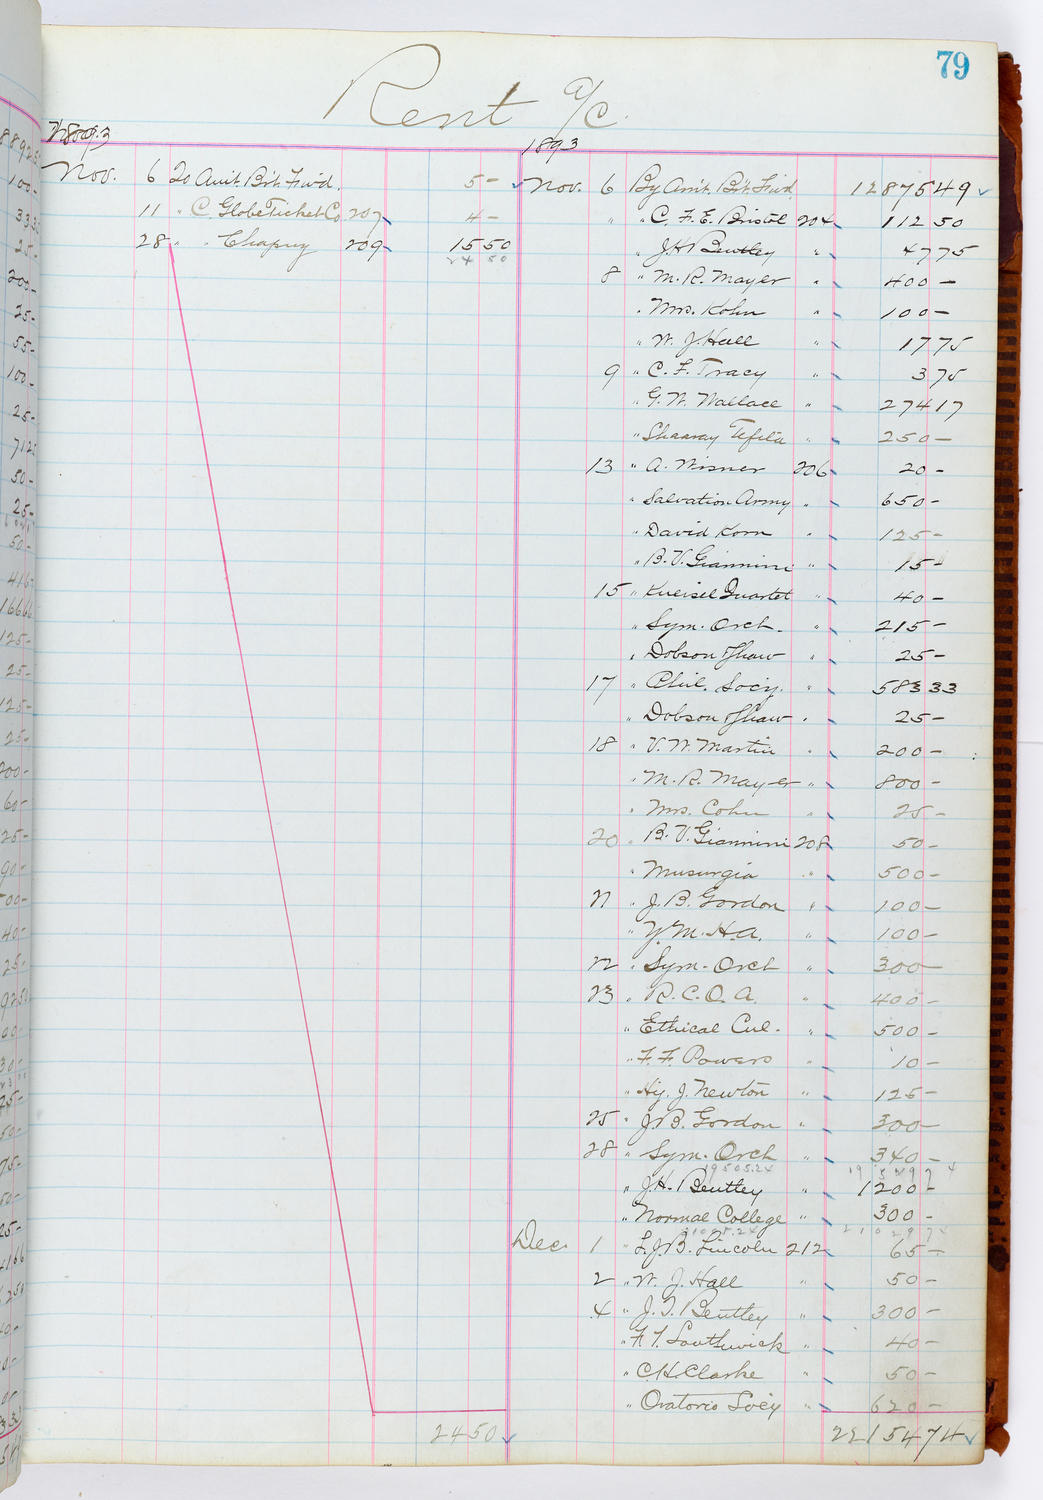 79
Rent a/c.
1893
Nov. 6 To Amt. Brt. Fwd. 5 -
11 " C. Globe Ticket Co. 207 4 -
28 " " Chapuy 209 15 50
24 50
24 50
1893
Nov. 6 By Amt. Brt. Fwd. 12875 49
" " C. F. E. Bristol 204 112 50
" J. H. Bentley " 47 75
8 " M. R. Mayer " 400 -
" Mrs. Kohn " 100 -
" W. J. Hall " 17 75
9 " C. F. Tracy " 3 75
" G. W. Wallace " 274 17
" Shaaray Tefila " 250 -
13 " A. Wisner 206 20 -
" Salvation Army " 650 -
" David Korn " 125 -
" B. V. Giannini " 15 -
15 " Kneisel Quartet " 40 -
" Sym. Orch. " 215 -
" Dobson & Shaw " 25 -
17 " Phil. Socy. " 583 33
" Dobson & Shaw " 25 -
18 " V. W. Martin " 200 -
" M. R. Mayer " 800 -
" Mrs. Cohn " 25 -
20 " B. V. Giannini 208 50 -
" Musurgia " 500 -
21 " J. B. Gordon " 100 -
" Y. M. H. A. " 100 -
22 " Sym. Orch " 300 -
23 " R. C. O. A. " 400 -
" Ethical Cul. " 500 -
" F. F. Powers " 10 -
" Hy. J. Newton " 125 -
25 " J. B. Gordon " 300 -
28 " Sym. Orch " 340 -
19505.24
" J. H. Bentley " 1200 -
" Normal College " 300 -
21005.24 21029 74
Dec. 1 " L. J. B. Lincoln 212 65 -
2 " W. J. Hall " 50 -
4 " J. T. Bentley " 300 -
" F. T. Southwick " 40 -
" C. H. Clarke " 50 -
" Oratorio Socy " 620 -
22154 74